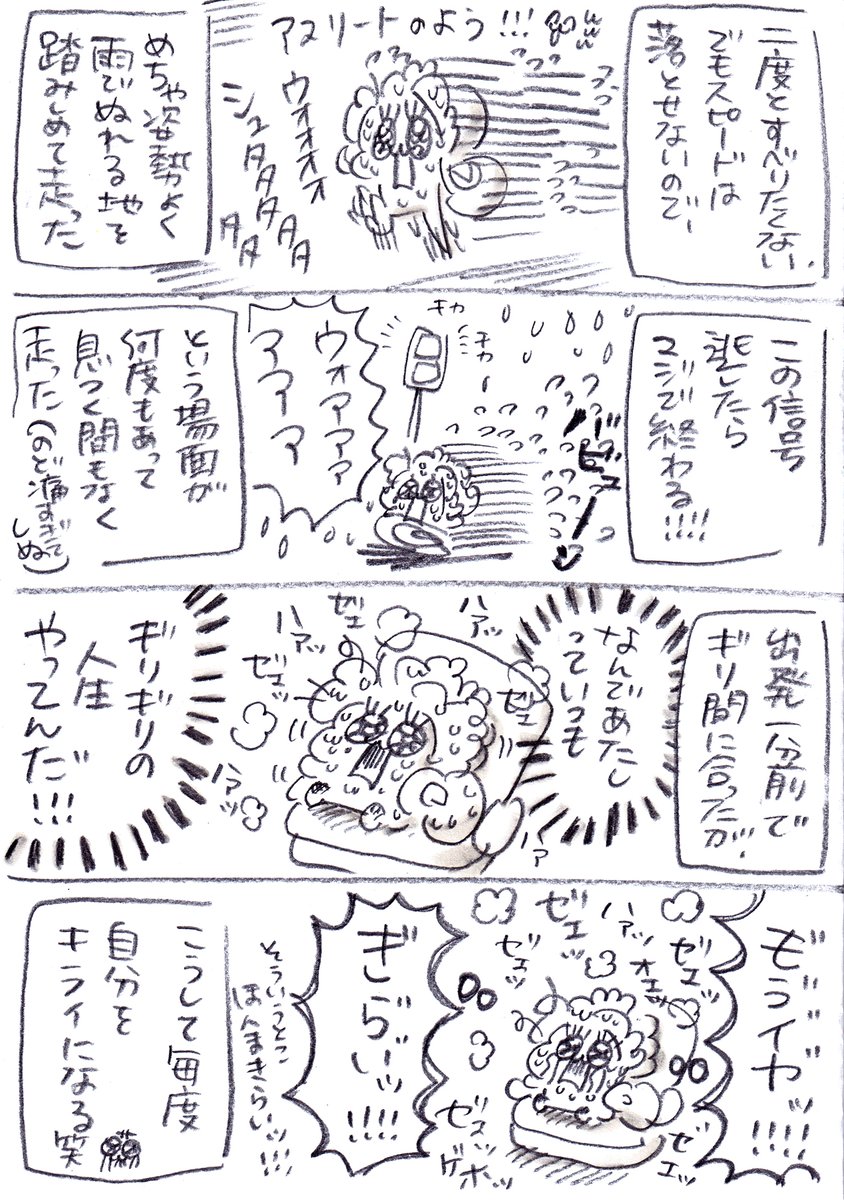 二度とすべりたくない、
でもスピードは
落とせないので、
アスリートのよう!!!
ウオオオオ
シュタタタタタ
タタ
めちゃ姿勢よく
雨でぬれる地を
踏みしめて走った
この信号
逃したら
マジで終わる!!!!
バビューン
チカ
チカー
ウォアァァ
アアアア
という場面が
何度もあって
息つく間もなく
走った(のど痛すぎて
しぬ)
出発一分前で
ギリ間に合ったが、
なんであたし
っていつも
ゼェ
ハアッ
ハアッ
ゼェ
ゼェッ
ハアッ
ハァ
ギリギリの
人生
やってんだ!!!
も゛う゛イヤ゛ッ!!!!
ゼエッ
ゼエッ
ハアッ
オエッ
ゼェッ
ゼエッ
ゼェッ
ゲホッ
ぎ
ら゛い゛ッ!!!!
そういうとこ
ほんまきらいッ!!!
こうして毎度
自分を
キライになる笑